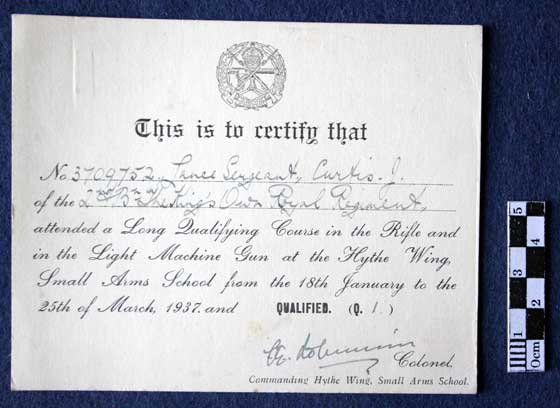 This is to certify that
No 3709752. Lance Sergeant, Curtis. J.
of the 2nd Bn The King's Own Royal Regiment,
attended a Long Qualifying Course in the Rifle and
in the Light Machine Gun at the Hythe Wing,
Small Arms School from the 18th January to the
25th of March, 1937. and QUALIFIED. (Q. 1.)
Colonel.
Commanding Hythe Wing, Small Arms School.
0cm 1 3 4 5